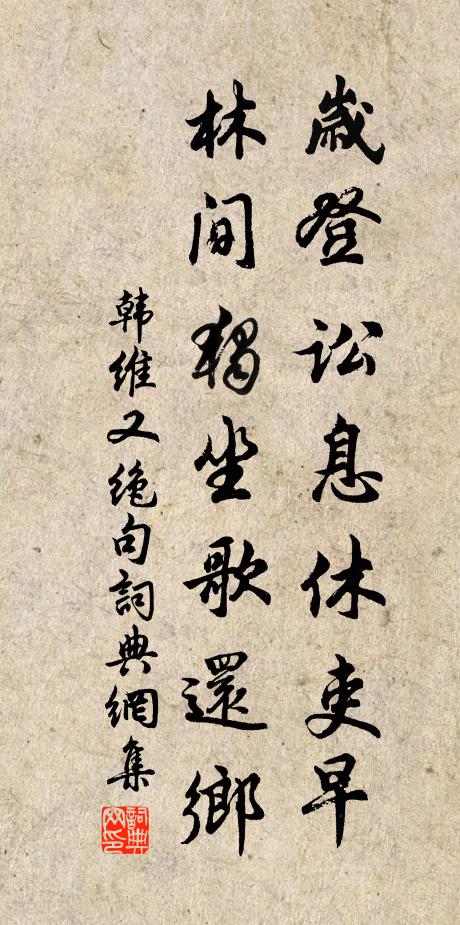 歲登訟息休吏早
林間獨坐歌還鄉
韩維又絶句詞典網集
詞典
网印